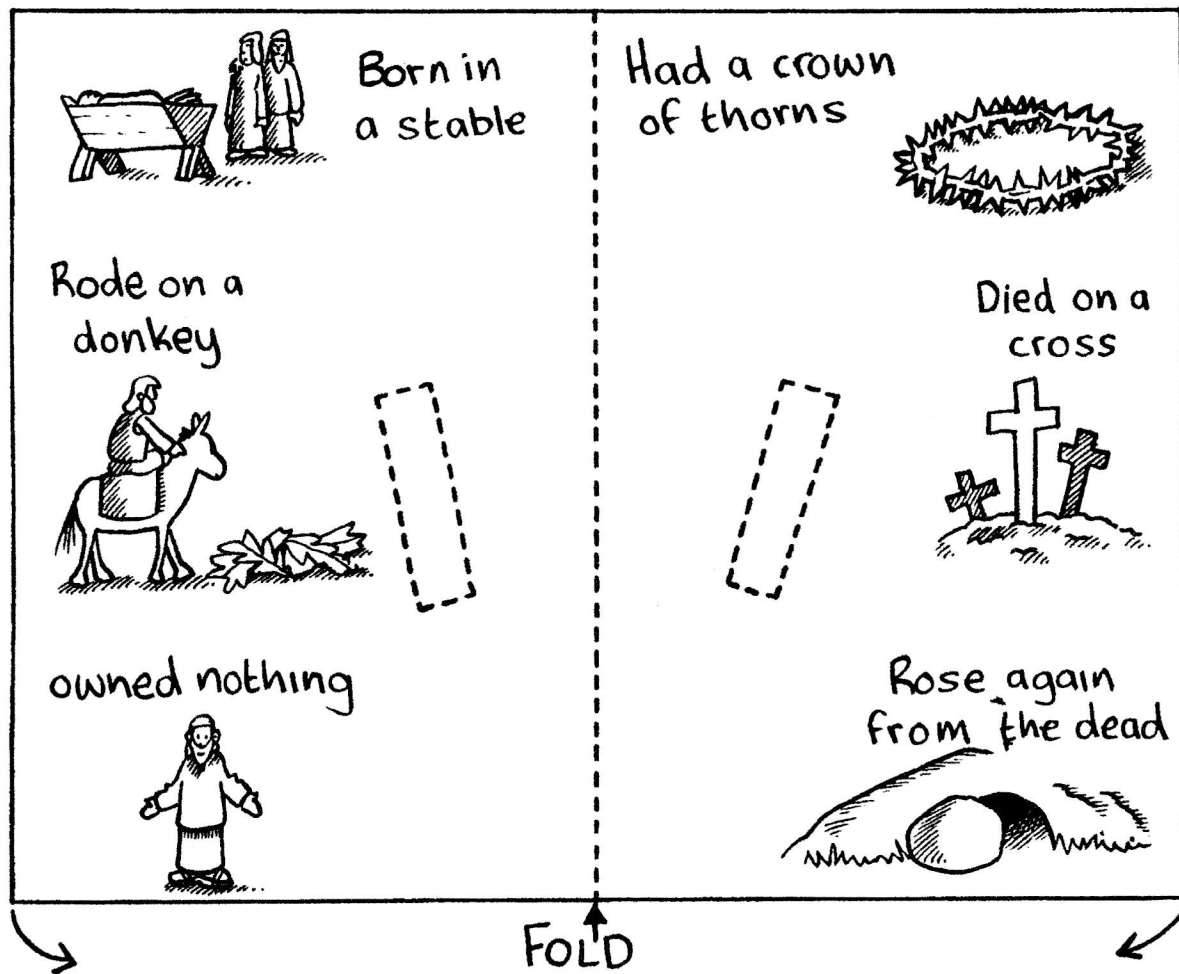 Born in
a stable
Rode on a
donkey
owned nothing
Had a crown
of thorns
Died on a
cross
Rose again
from the dead
FOLD